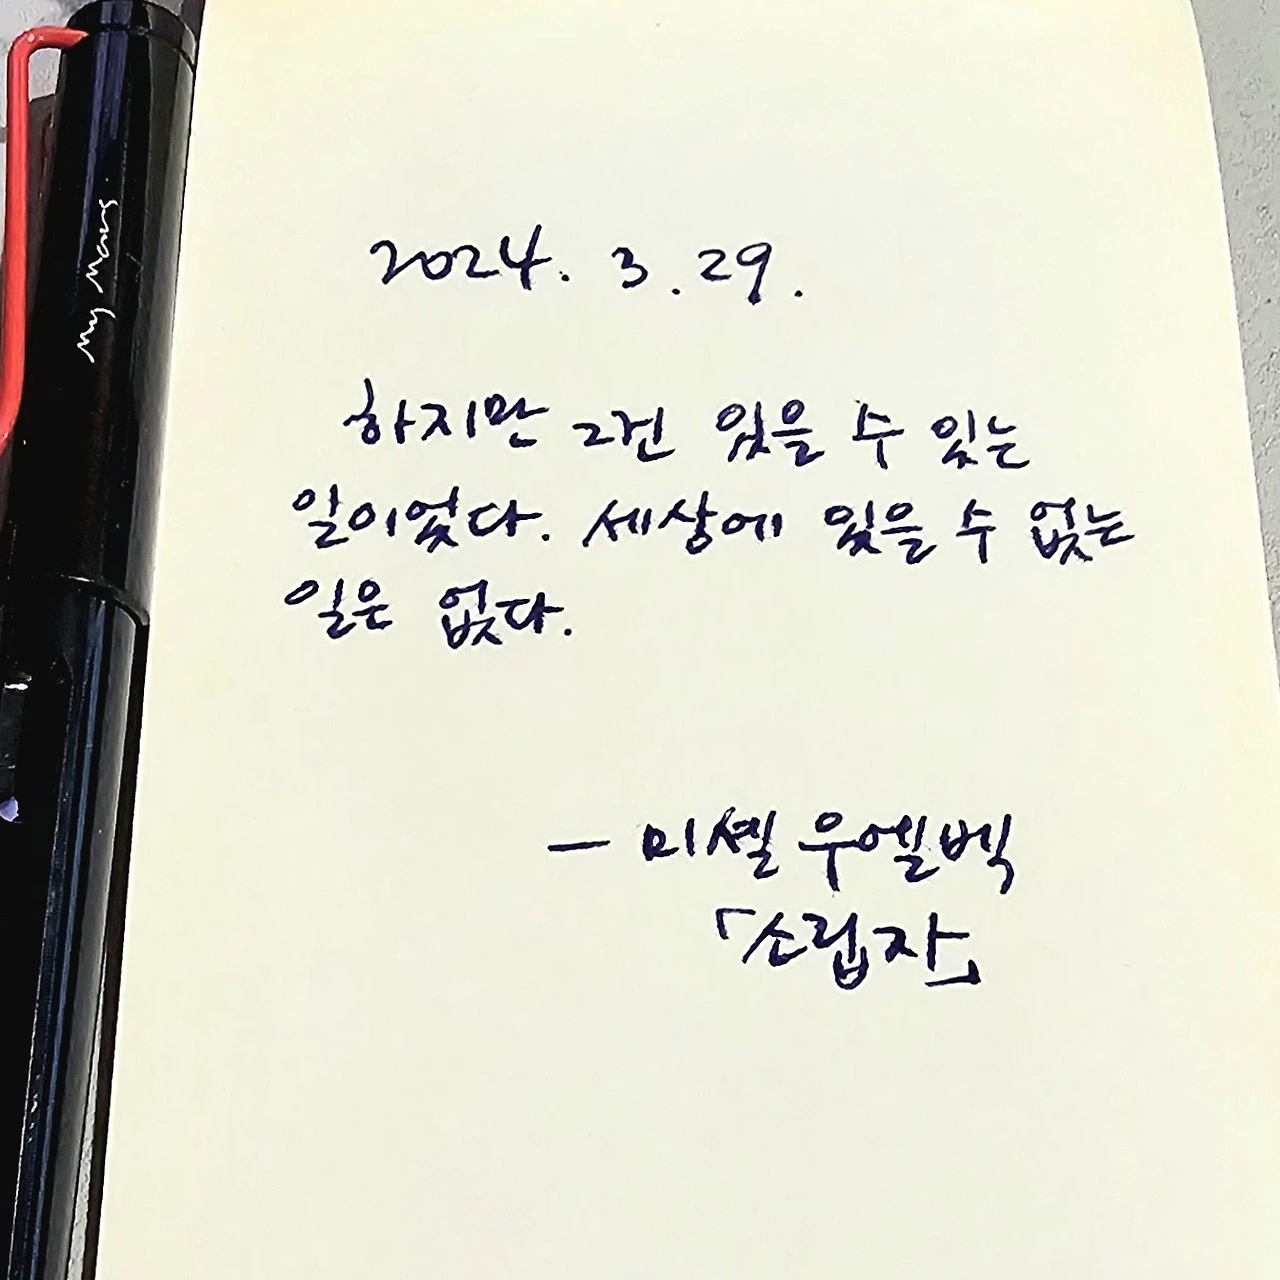 2024. 3. 29.
하지만 그건 있을 수 있는
일이었다. 세상에 있을 수 없는
일은 없다.
— 미셸 우엘벡
「소립자」